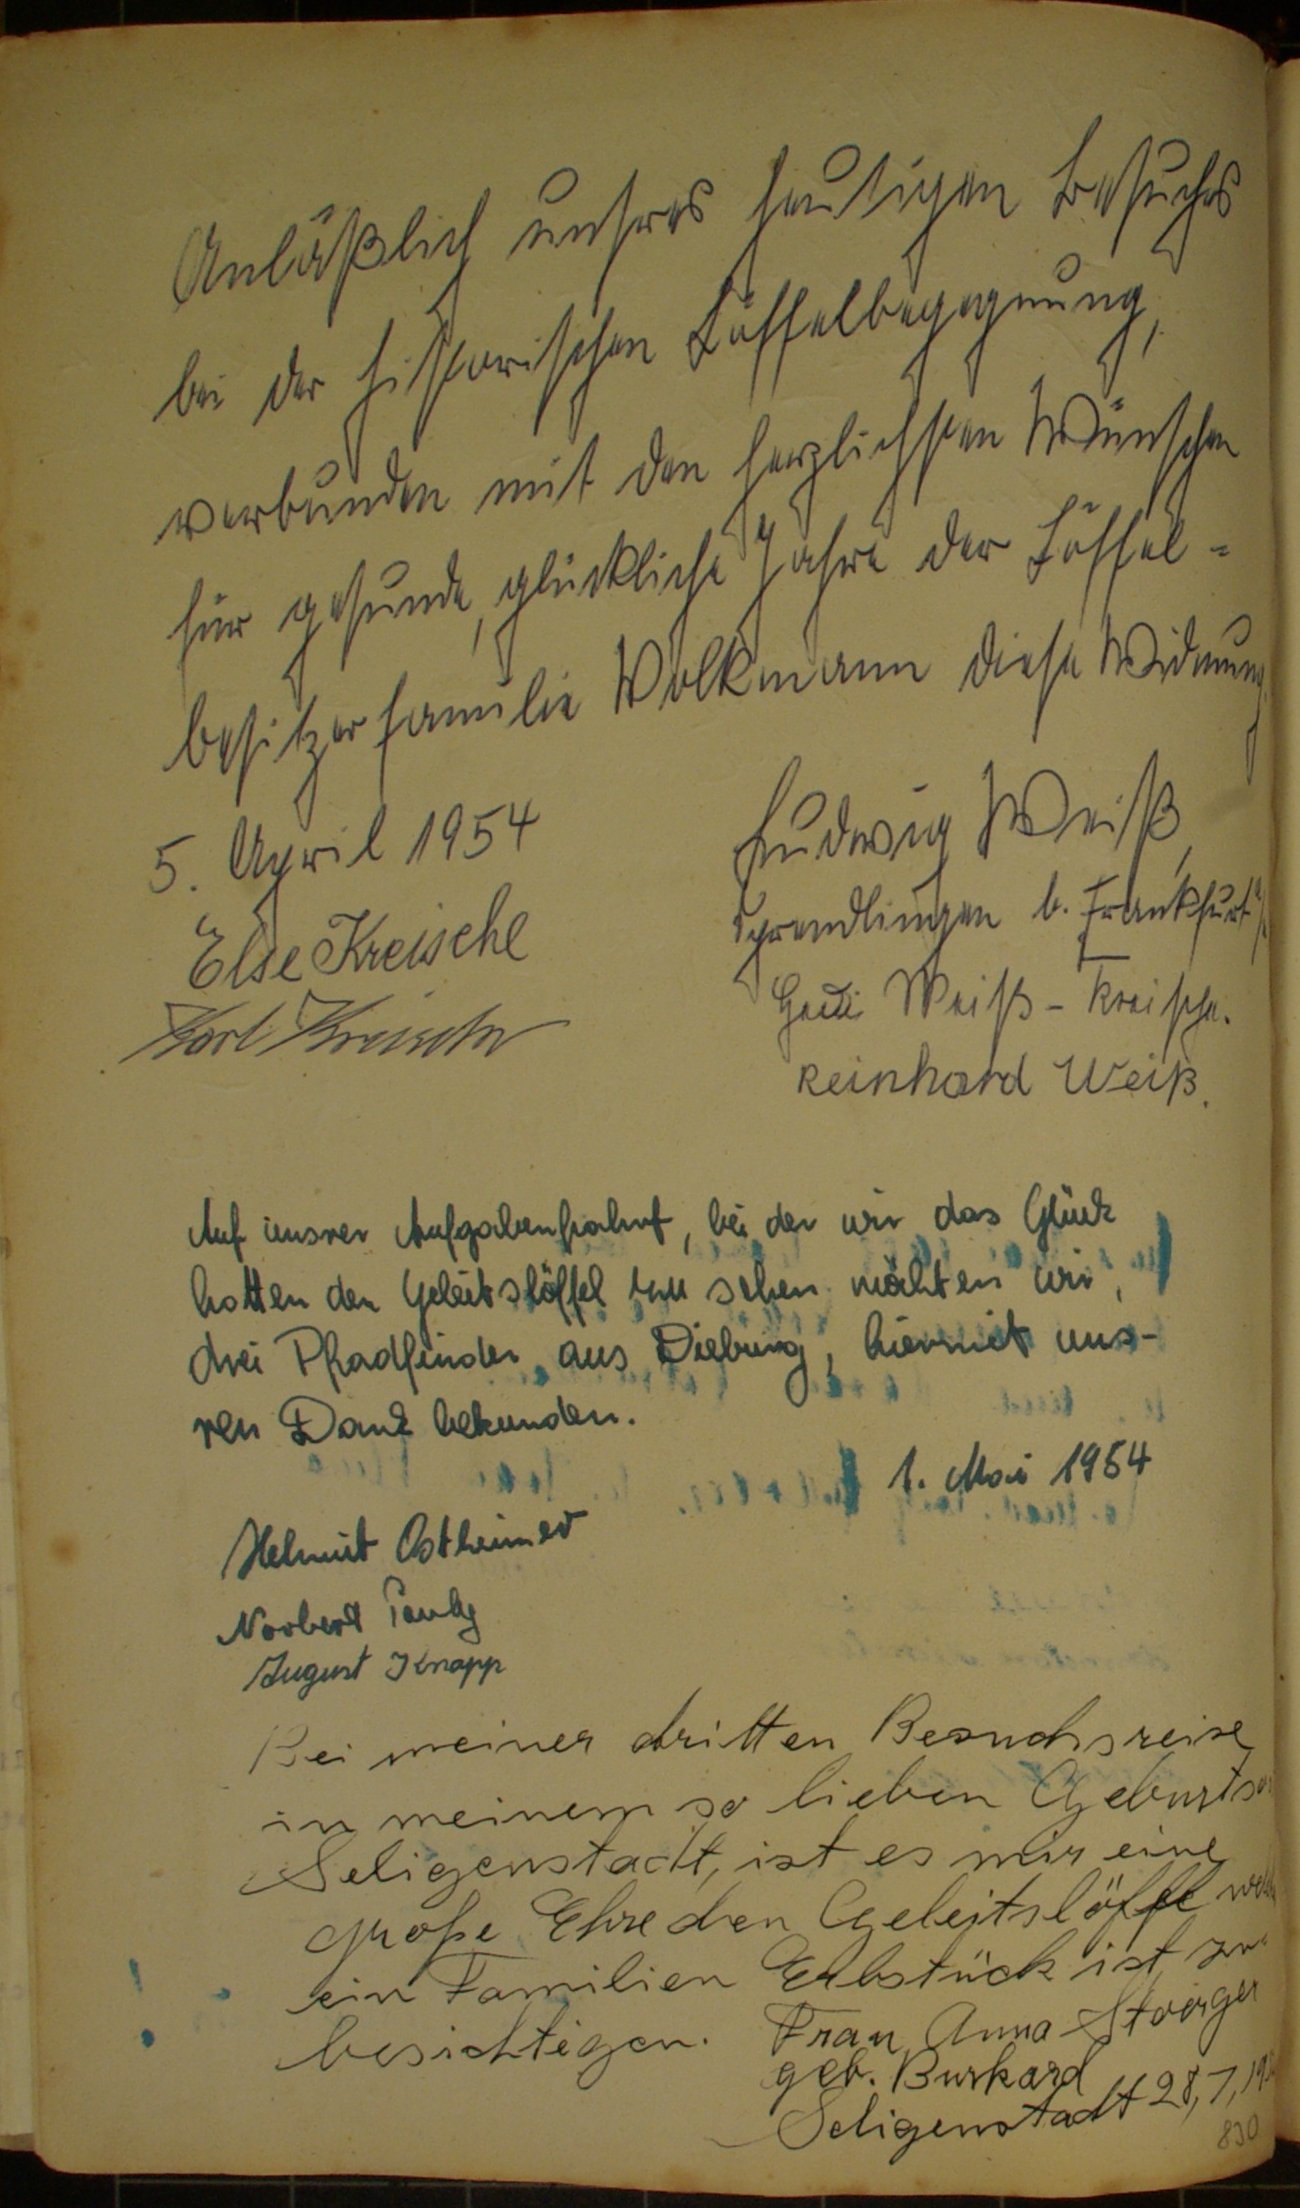 Anläßlich unseres heutigen Besuches
bei der historischen Löffelbegegnung,
verbunden mit den herzlichsten Wünschen
für gesunde, glückliche Jahre der Löffel-
besitzerfamilie Volkmann diese Widmung.
5. April 1954
Ludwig Weiß,
Sprendlingen b. Frankfurt
Else Kreische
Karl Kreische
Weiß - Kreische.
Reinhard Weiß.
Auf unsrer Aufgabenfahrt, bei der wir das Glück
hatten den Geleitslöffel zu sehen möchten wir,
drei Pfadfinder aus Dieburg, hiermit uns-
ren Dank bekunden.
1. Mai 1954
Helmut Ostheimer
Norbert Pauly
August Knapp
Bei meiner dritten Besuchsreise
in meinem so lieben
Seligenstadt, ist es mir eine
große Ehre den Geleitslöffel
ein Familien Erbstück ist zu
besichtigen. Frau Anna
geb. Burkard
Seligenstadt
830